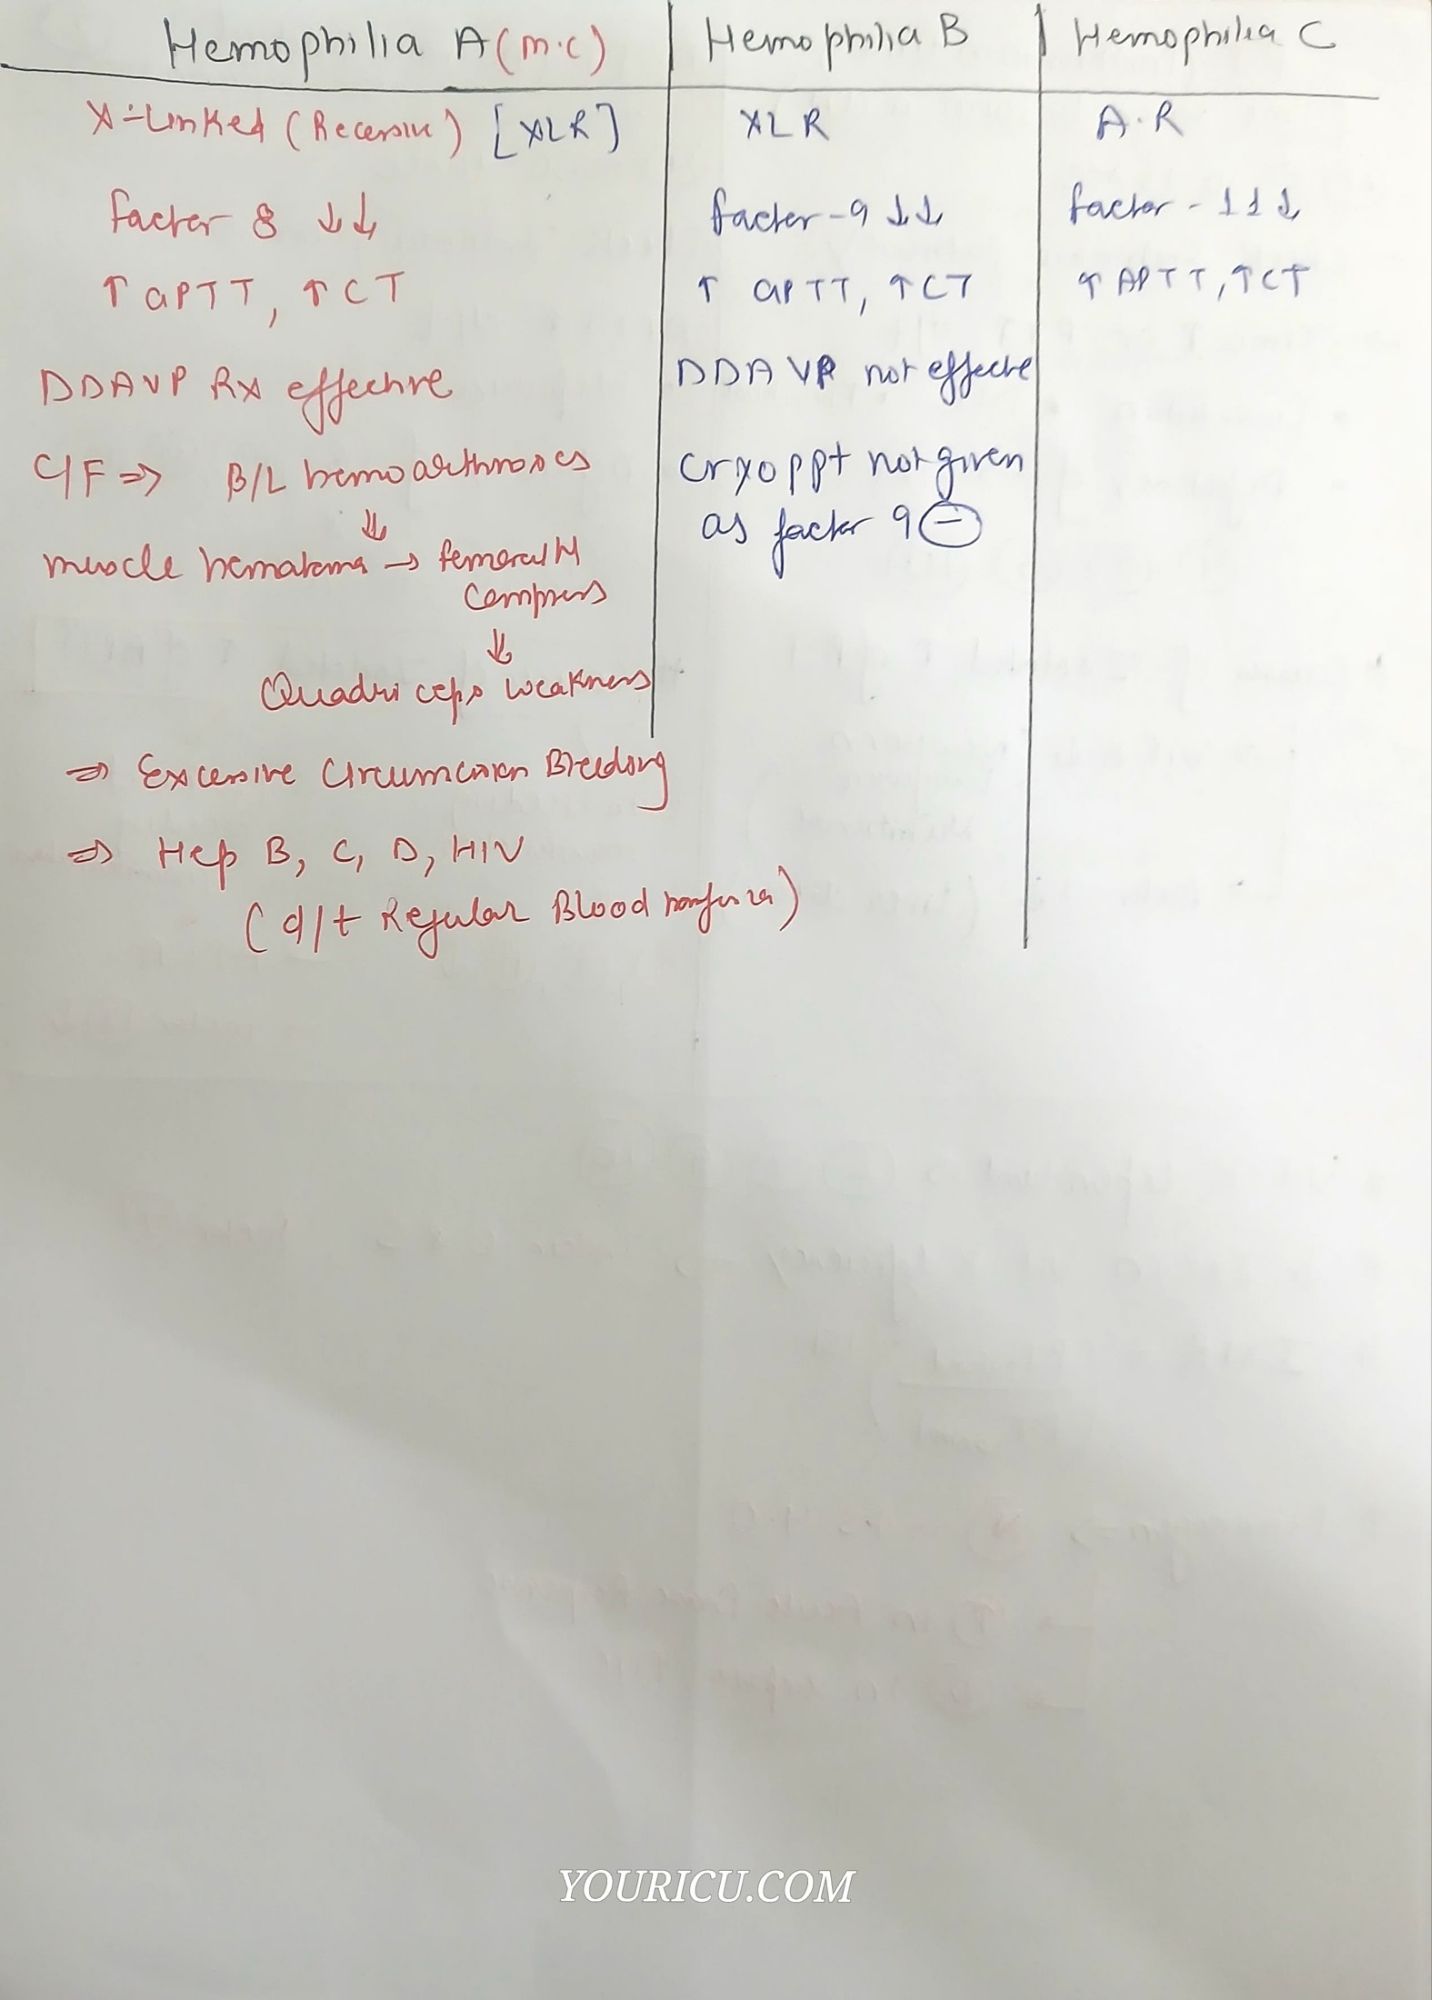 Hemophilia A (m.c)
X-Linked (Recessive) [XLR]
factor 8 ↓↓
↑ aPTT, ↑ CT
DDAVP Rx effective
C/F ⇒ B/L hemoarthroses
⇓
muscle hematoma → femoral N
compress
⇓
Quadriceps weakness
⇒ Excessive Circumcision Bleeding
⇒ Hep B, C, D, HIV
(d/t Regular Blood transfusion)
Hemophilia B
XLR
factor-9 ↓↓
↑ aPTT, ↑CT
DDAVP not effective
Cryoppt not given
as factor 9 ⊖
Hemophilia C
A.R
factor - 11 ↓
↑ APTT, ↑CT
YOURICU.COM